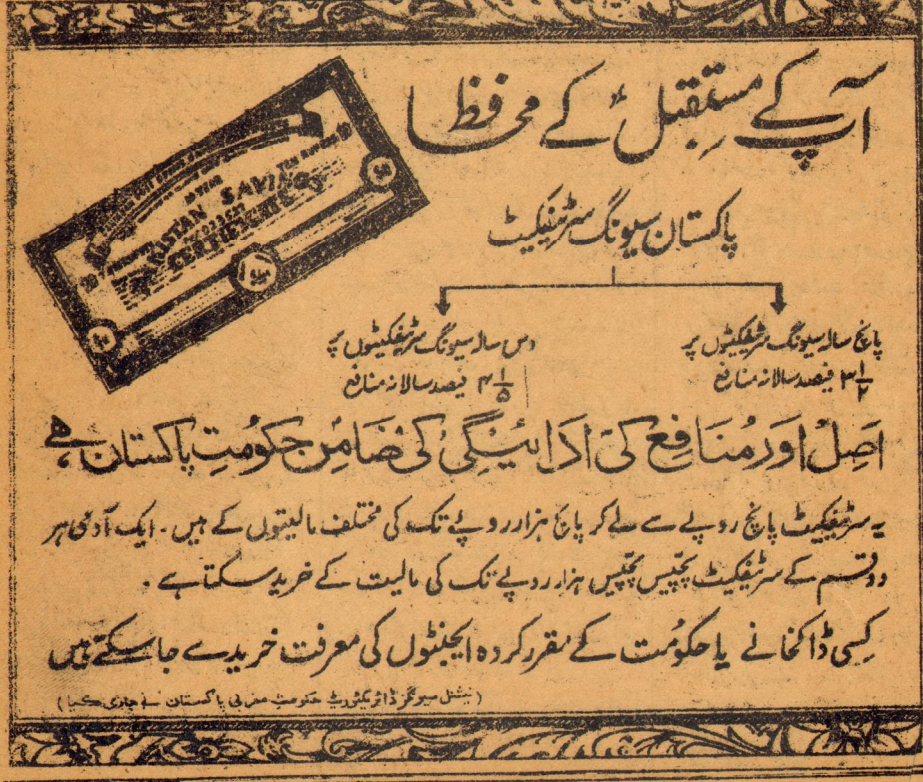 آپ کے مستقبل کے محافظ
PAKISTAN SAVINGS
CERTIFICATE
پاکستان سیونگ سرٹیفکیٹ
پانچ سالہ سیونگ سرٹیفکیٹوں پر
۳ ۱/۲ فیصد سالانہ منافع
دس سالہ سیونگ سرٹیفکیٹوں پر
۴ ۱/۵ فیصد سالانہ منافع
اصل اور منافع کی ادائیگی کی ضامن حکومتِ پاکستان ہے
یہ سرٹیفکیٹ پانچ روپے سے لے کر پانچ ہزار روپے تک کی مختلف مالیتوں کے ہیں۔ ایک آدمی ہر
دو قسم کے سرٹیفکیٹ پچیس پچیس ہزار روپے تک کی مالیت کے خرید سکتا ہے۔
کسی ڈاکخانے یا حکومت کے مقرر کردہ ایجنٹوں کی معرفت خریدے جا سکتے ہیں
(نیشنل سیونگز ڈائریکٹوریٹ حکومت مغربی پاکستان نے جاری کیا)